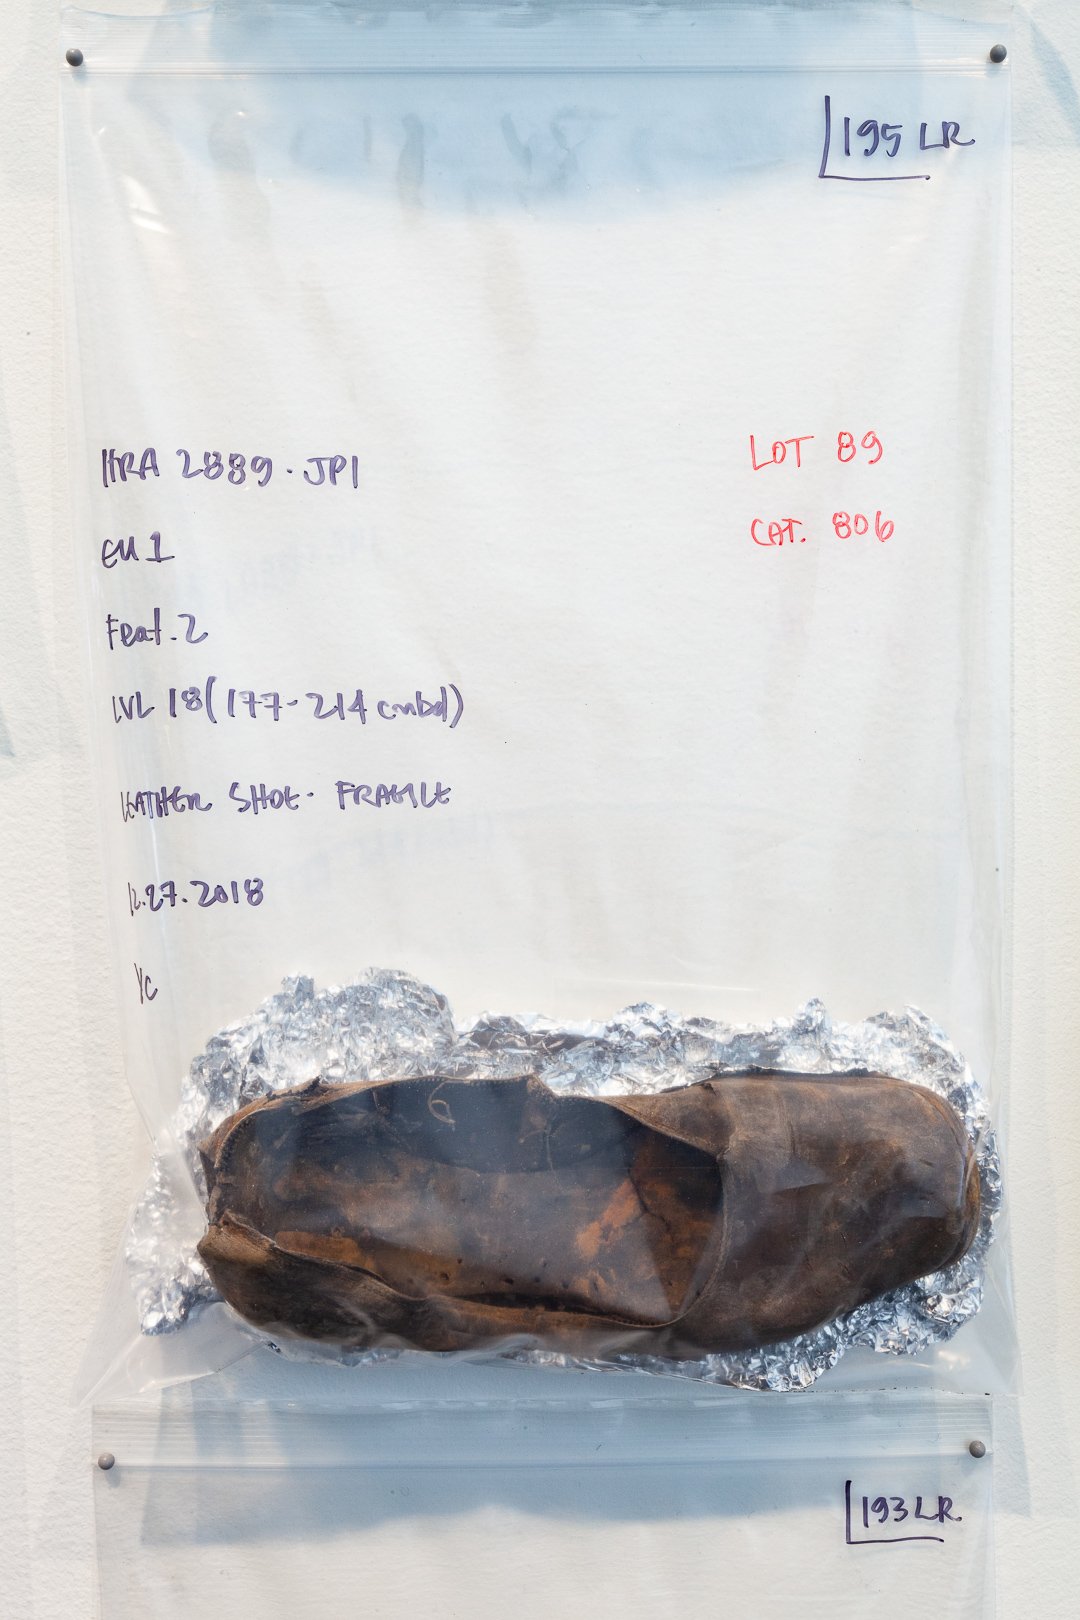 195 LR
HRA 2889. JPI
LOT 89
EU 1
CAT. 806
Feat. 2
LVL 18 (177-214 cmbd)
LEATHER SHOE - FRAGILE
12.27.2018
YC
193 LR